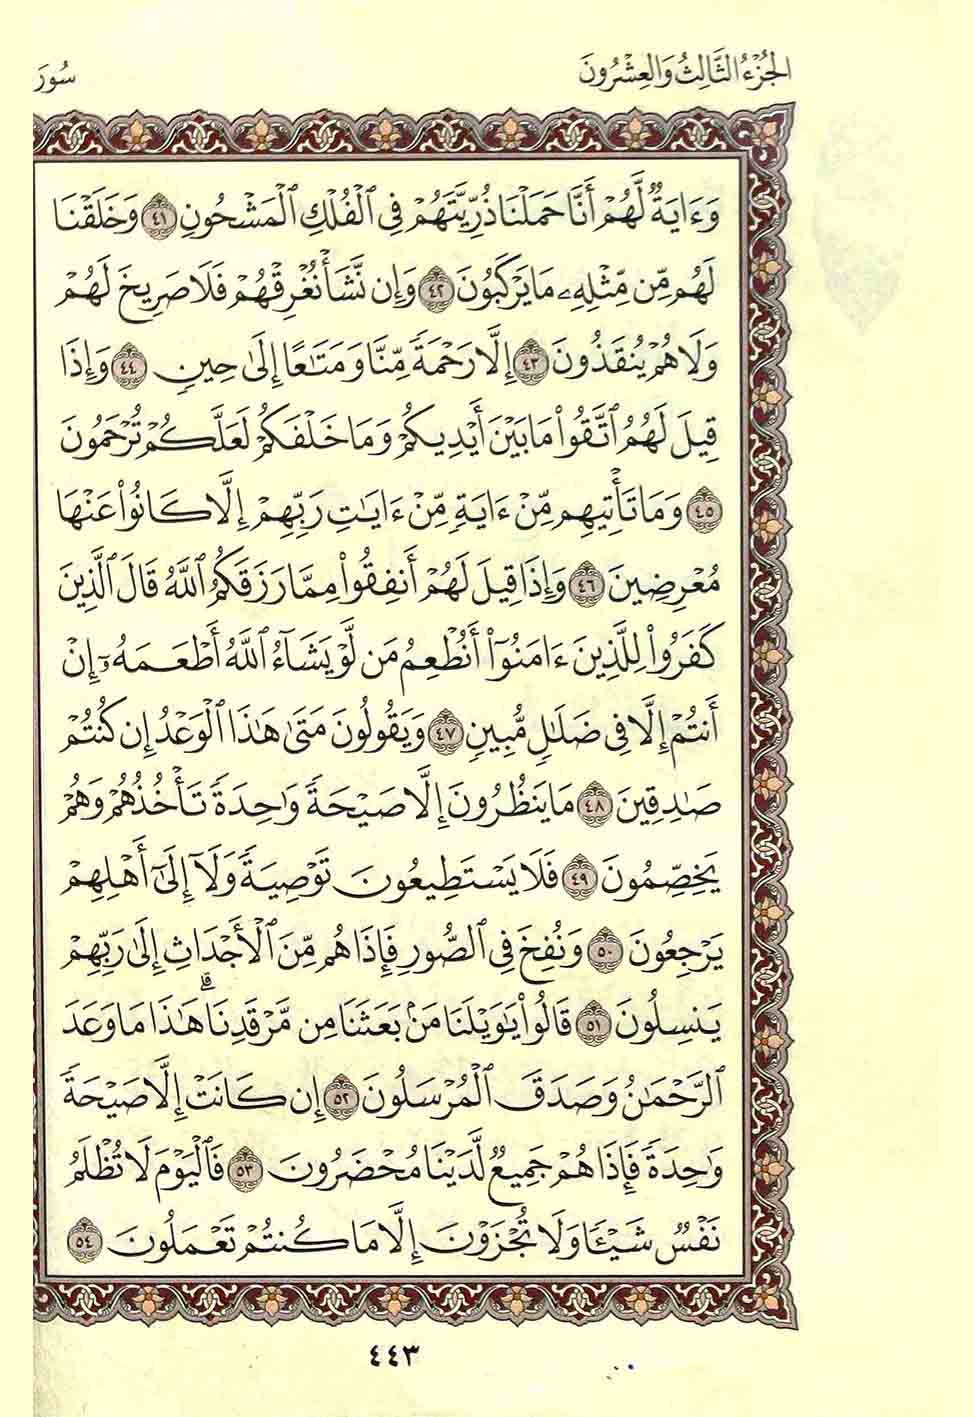 الجُزْءُ الثَّالِثُ وَالعِشْرُونَ سُورَ
وَءَايَةٌ لَّهُمْ أَنَّا حَمَلْنَا ذُرِّيَّتَهُمْ فِي ٱلْفُلْكِ ٱلْمَشْحُونِ ٤١ وَخَلَقْنَا
لَهُم مِّن مِّثْلِهِۦ مَا يَرْكَبُونَ ٤٢ وَإِن نَّشَأْ نُغْرِقْهُمْ فَلَا صَرِيخَ لَهُمْ
وَلَا هُمْ يُنقَذُونَ ٤٣ إِلَّا رَحْمَةً مِّنَّا وَمَتَـٰعًا إِلَىٰ حِينٍ ٤٤ وَإِذَا
قِيلَ لَهُمُ ٱتَّقُوا۟ مَا بَيْنَ أَيْدِيكُمْ وَمَا خَلْفَكُمْ لَعَلَّكُمْ تُرْحَمُونَ
٤٥ وَمَا تَأْتِيهِم مِّنْ ءَايَةٍ مِّنْ ءَايَـٰتِ رَبِّهِمْ إِلَّا كَانُوا۟ عَنْهَا
مُعْرِضِينَ ٤٦ وَإِذَا قِيلَ لَهُمْ أَنفِقُوا۟ مِمَّا رَزَقَكُمُ ٱللَّهُ قَالَ ٱلَّذِينَ
كَفَرُوا۟ لِلَّذِينَ ءَامَنُوٓا۟ أَنُطْعِمُ مَن لَّوْ يَشَآءُ ٱللَّهُ أَطْعَمَهُۥٓ إِنْ
أَنتُمْ إِلَّا فِي ضَلَـٰلٍ مُّبِينٍ ٤٧ وَيَقُولُونَ مَتَىٰ هَـٰذَا ٱلْوَعْدُ إِن كُنتُمْ
صَـٰدِقِينَ ٤٨ مَا يَنظُرُونَ إِلَّا صَيْحَةً وَٰحِدَةً تَأْخُذُهُمْ وَهُمْ
يَخِصِّمُونَ ٤٩ فَلَا يَسْتَطِيعُونَ تَوْصِيَةً وَلَآ إِلَىٰٓ أَهْلِهِمْ
يَرْجِعُونَ ٥٠ وَنُفِخَ فِي ٱلصُّورِ فَإِذَا هُم مِّنَ ٱلْأَجْدَاثِ إِلَىٰ رَبِّهِمْ
يَنسِلُونَ ٥١ قَالُوا۟ يَـٰوَيْلَنَا مَنۢ بَعَثَنَا مِن مَّرْقَدِنَا ۗ هَـٰذَا مَا وَعَدَ
ٱلرَّحْمَـٰنُ وَصَدَقَ ٱلْمُرْسَلُونَ ٥٢ إِن كَانَتْ إِلَّا صَيْحَةً
وَٰحِدَةً فَإِذَا هُمْ جَمِيعٌ لَّدَيْنَا مُحْضَرُونَ ٥٣ فَٱلْيَوْمَ لَا تُظْلَمُ
نَفْسٌ شَيْـًٔا وَلَا تُجْزَوْنَ إِلَّا مَا كُنتُمْ تَعْمَلُونَ ٥٤
٤٤٣